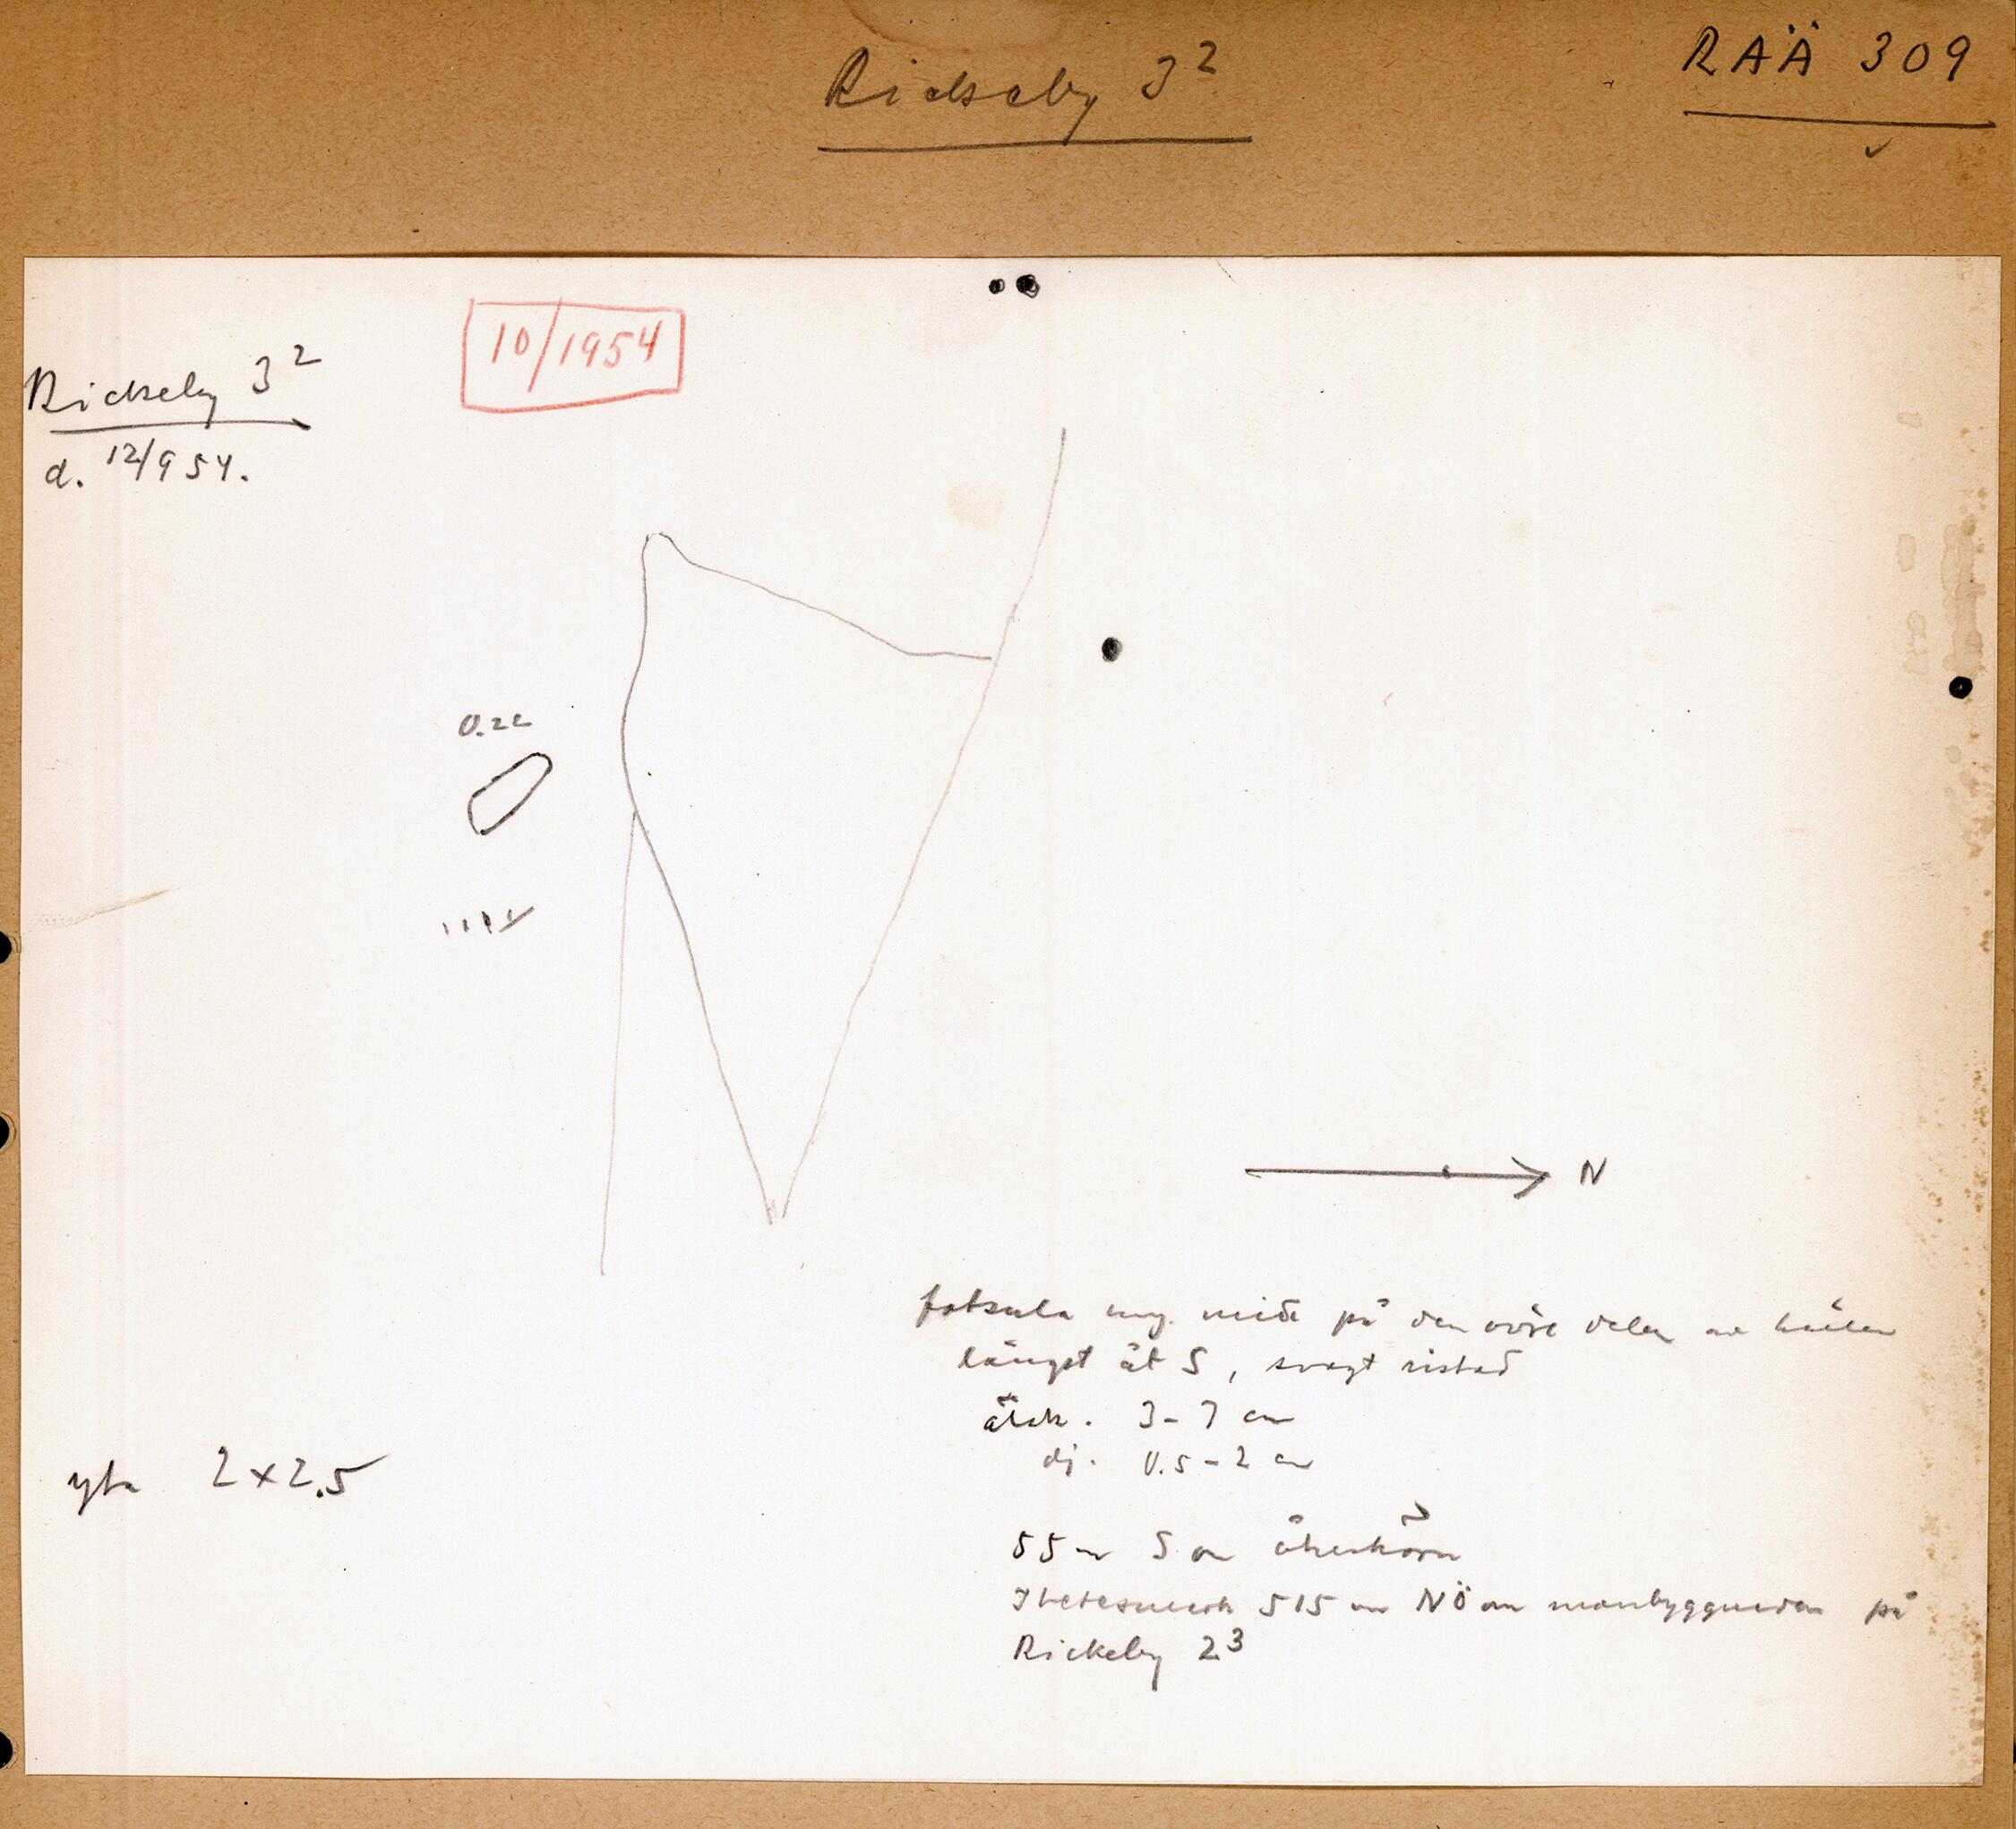 Rickeby 3²
RAÄ 309
10/1954
Rickeby 3²
d. 12/9 54.
0.22
N
fotsula ung. mitt på den övre delen av hällen
längst åt S, svagt ristad
älvk. 3-7 cm
dj. 0.5-2 cm
yta 2x2.5
55 m S om åkerhörn
515 m NÖ om manbyggnaden på
Rickeby 2³